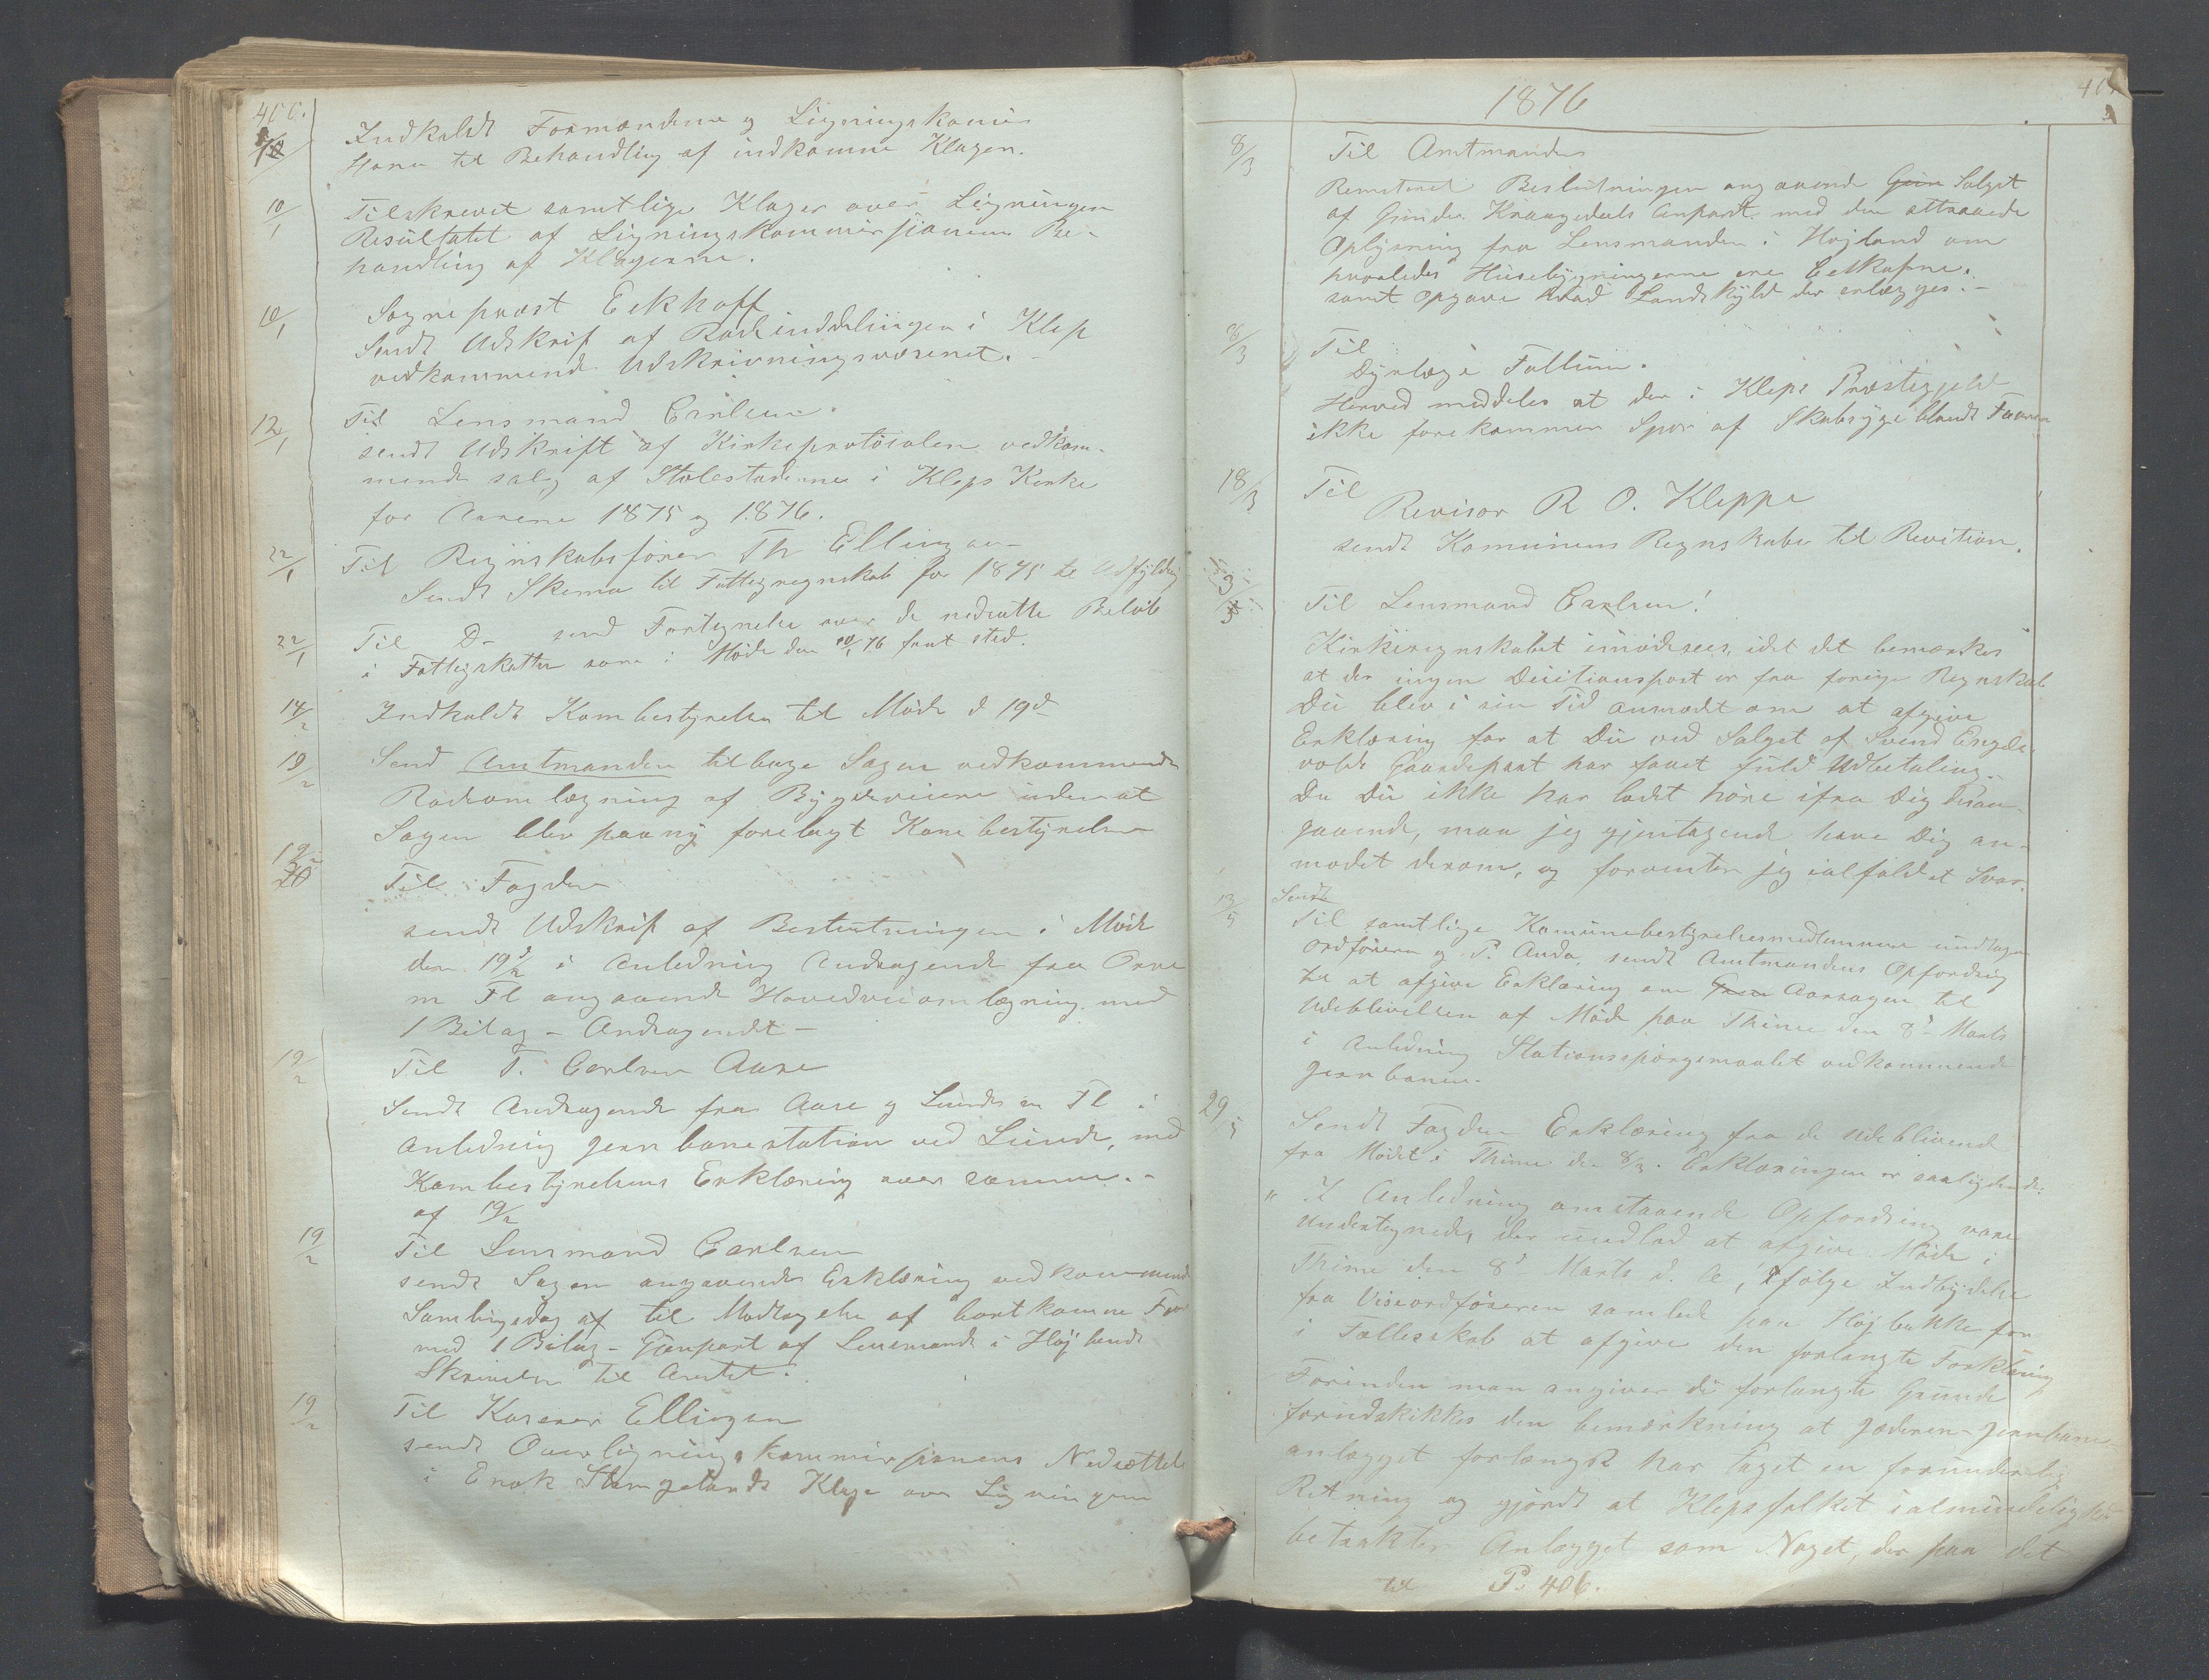 400.
Indkaldt Formændene og Ligningskomis
til Behandling af indkomne Klager.
10/1 Tilskrevet samtlige Klager over Ligningen
Resultatet af Ligningskommissionens Be-
handling af Klagerne.
10/1 Sognepræst Eckhoff
Sendt Udskrift af Rodeinddelingen i Klep
vedkommende Udskrivningsvæsenet.
12/1 Til Lensmand Carlsen.
sendt Udskrift af Kirkeprotocolen vedkom-
mende salg af Stolestaderne i Kleps Kirke
for Aarene 1875 og 1876.
22/1 Til Regnskabsfører Th Ellingsen
Sendt Skema til Fattigregnskab for 1875 til Udfyldning
22/1 Til Do send Fortegnelse over de nedsatte Beløb
i Fattigskatten som i Møde den 10/1 76 fant sted.
14/2 Indkaldt Kombestyrelsen til Møde d 19de
19/2 Send Amtmanden tilbage Sagen vedkommende
Rodeomlægning af Bygdeveiene uden at
Sagen blev paany forelagt Kombestyrelsen
19/2 Til Fogden
sendt Udskrift af Beslutningen i Møde
den 19/2 i Anledning Andragende fra Orre
m Fl angaaende Hovedveiomlægning med
1 Bilag - Andragendet -
19/2 Til T. Carlsen Aare
Sendt Andragende fra Aare og Lunde m Fl i
Anledning Jernbanestation ved Lunde, med
Kombestyrelsens Erklæring over samme.-
af 19/2
19/2 Til Lensmand Carlsen
sendt Sagen angaaende Erklæring vedkommende
Samlingsdag af til Modtagelse af bortkomne Faar
med 1 Bilag - Gjenpart af Lensmands i Højlands
Skrivelse til Amtet.
19/2 Til Kaserer Ellingsen
sendt Overligningskommissionens Nedsættelse
i Enok Stangelands Klage over Ligningen
1876
8/3 Til Amtmanden
Remiteret Beslutningen angaaende Salget
af Gunder Kraagedals Anpart med den attraaede
Oplysning fra Lensmanden i Højland om
hvorledes Husebygningerne ere beskafne.
samt opgave hvad Landskyld der erlægges.-
8/3 Til
Dyrlæge Fallium.
Herved meddeles at der i Kleps Præstegjeld
ikke forekommer Spor af Skabsyge blandt Faarene
18/3 Til
Revisor R O. Kleppe
sendt Komunens Regnskaber til Revition.
Til Lensmand Carlsen!
Kirkeregnskabet imødesees, idet det bemærkes
at der ingen Decitionspost er fra forige Regnskab
Du blev i sin Tid anmodet om at afgive
Erklæring for at Du ved Salget af Svend Engels-
volds Gaardepart har faaet fuld Udbetaling.
Da Du ikke har ladt høre ifra Dig desan-
gaaende, maa jeg gjentagende have Dig an-
modet derom, og forventer jeg ialfald et Svar.
13/5 Sendt
Til samtlige Komunebestyrelsesmedlemmer undtagen
Ordføreren og P. Anda, sendt Amtmandens Opfordring
til at afgive Erklæring om Aarsagen til
Udeblivelsen af Møde paa Thime den 8d Marts
i Anledning Stationsspørgsmaalet vedkommende
Jernbanen.
29/5 Sendt Fogden Erklæring fra de Udeblivende
fra Mødet i Thime den 8/3. Erklæringen er saalydende:
" I Anledning omstaaende Opfordring vare
Undertegnede, der undlod at afgive Møde i
Thime den 8d Marts d. A, ifølge Indbydelse
fra Viseordføreren samlede paa Højbakke for
i Fællesskab at afgive den forlangte Forklaring
Forinden man angiver de forlangte Grunde
forudskikkes den bemærkning at Jæderen-Jernbane-
anlægget forlængst har taget en forunderlig
Retning og gjordt at Klepsfolket ialmindelighed
betrakter Anlægget som Noget, der paa det
til P. 406.